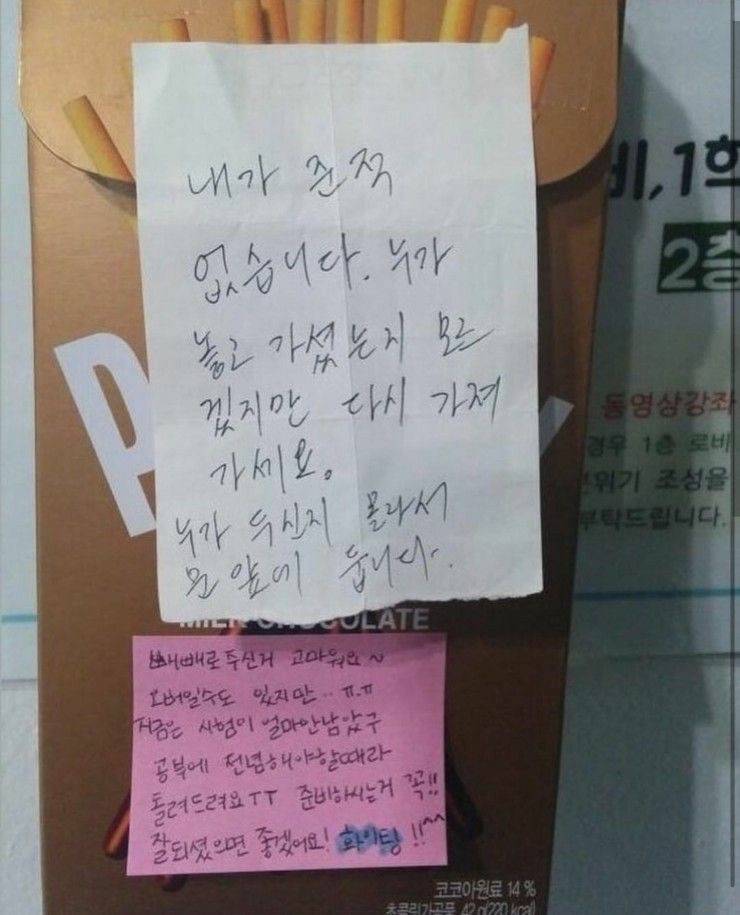 내가 준적
없습니다. 누가
놓고 가셨는지 모르
겠지만 다시 가져
가세요.
누가 두신지 몰라서
문 앞에 둡니다.
MILK CHOCOLATE
빼빼로 주신거 고마워요~
오버일수도 있지만.. ㅠ.ㅠ
지금은 시험이 얼마안남았구
공부에 전념해야할때라
돌려드려요TT 준비하시는거 꼭!!
잘되셨으면 좋겠어요! 화이팅!!^^
코코아원료 14%
초콜릿가공품 42g(220 kcal)
2층
동영상강좌
경우 1층 로비
분위기 조성을
부탁드립니다.